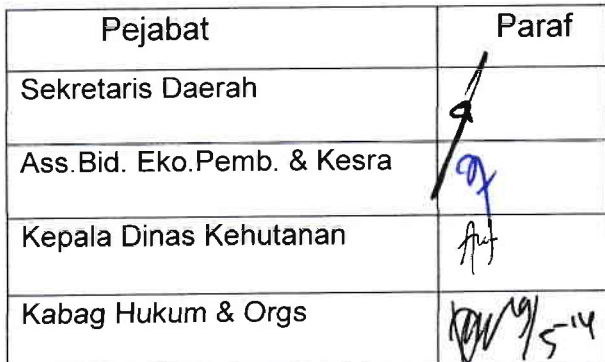 Pejabat Paraf
Sekretaris Daerah
Ass.Bid. Eko.Pemb. & Kesra
Kepala Dinas Kehutanan
Kabag Hukum & Orgs